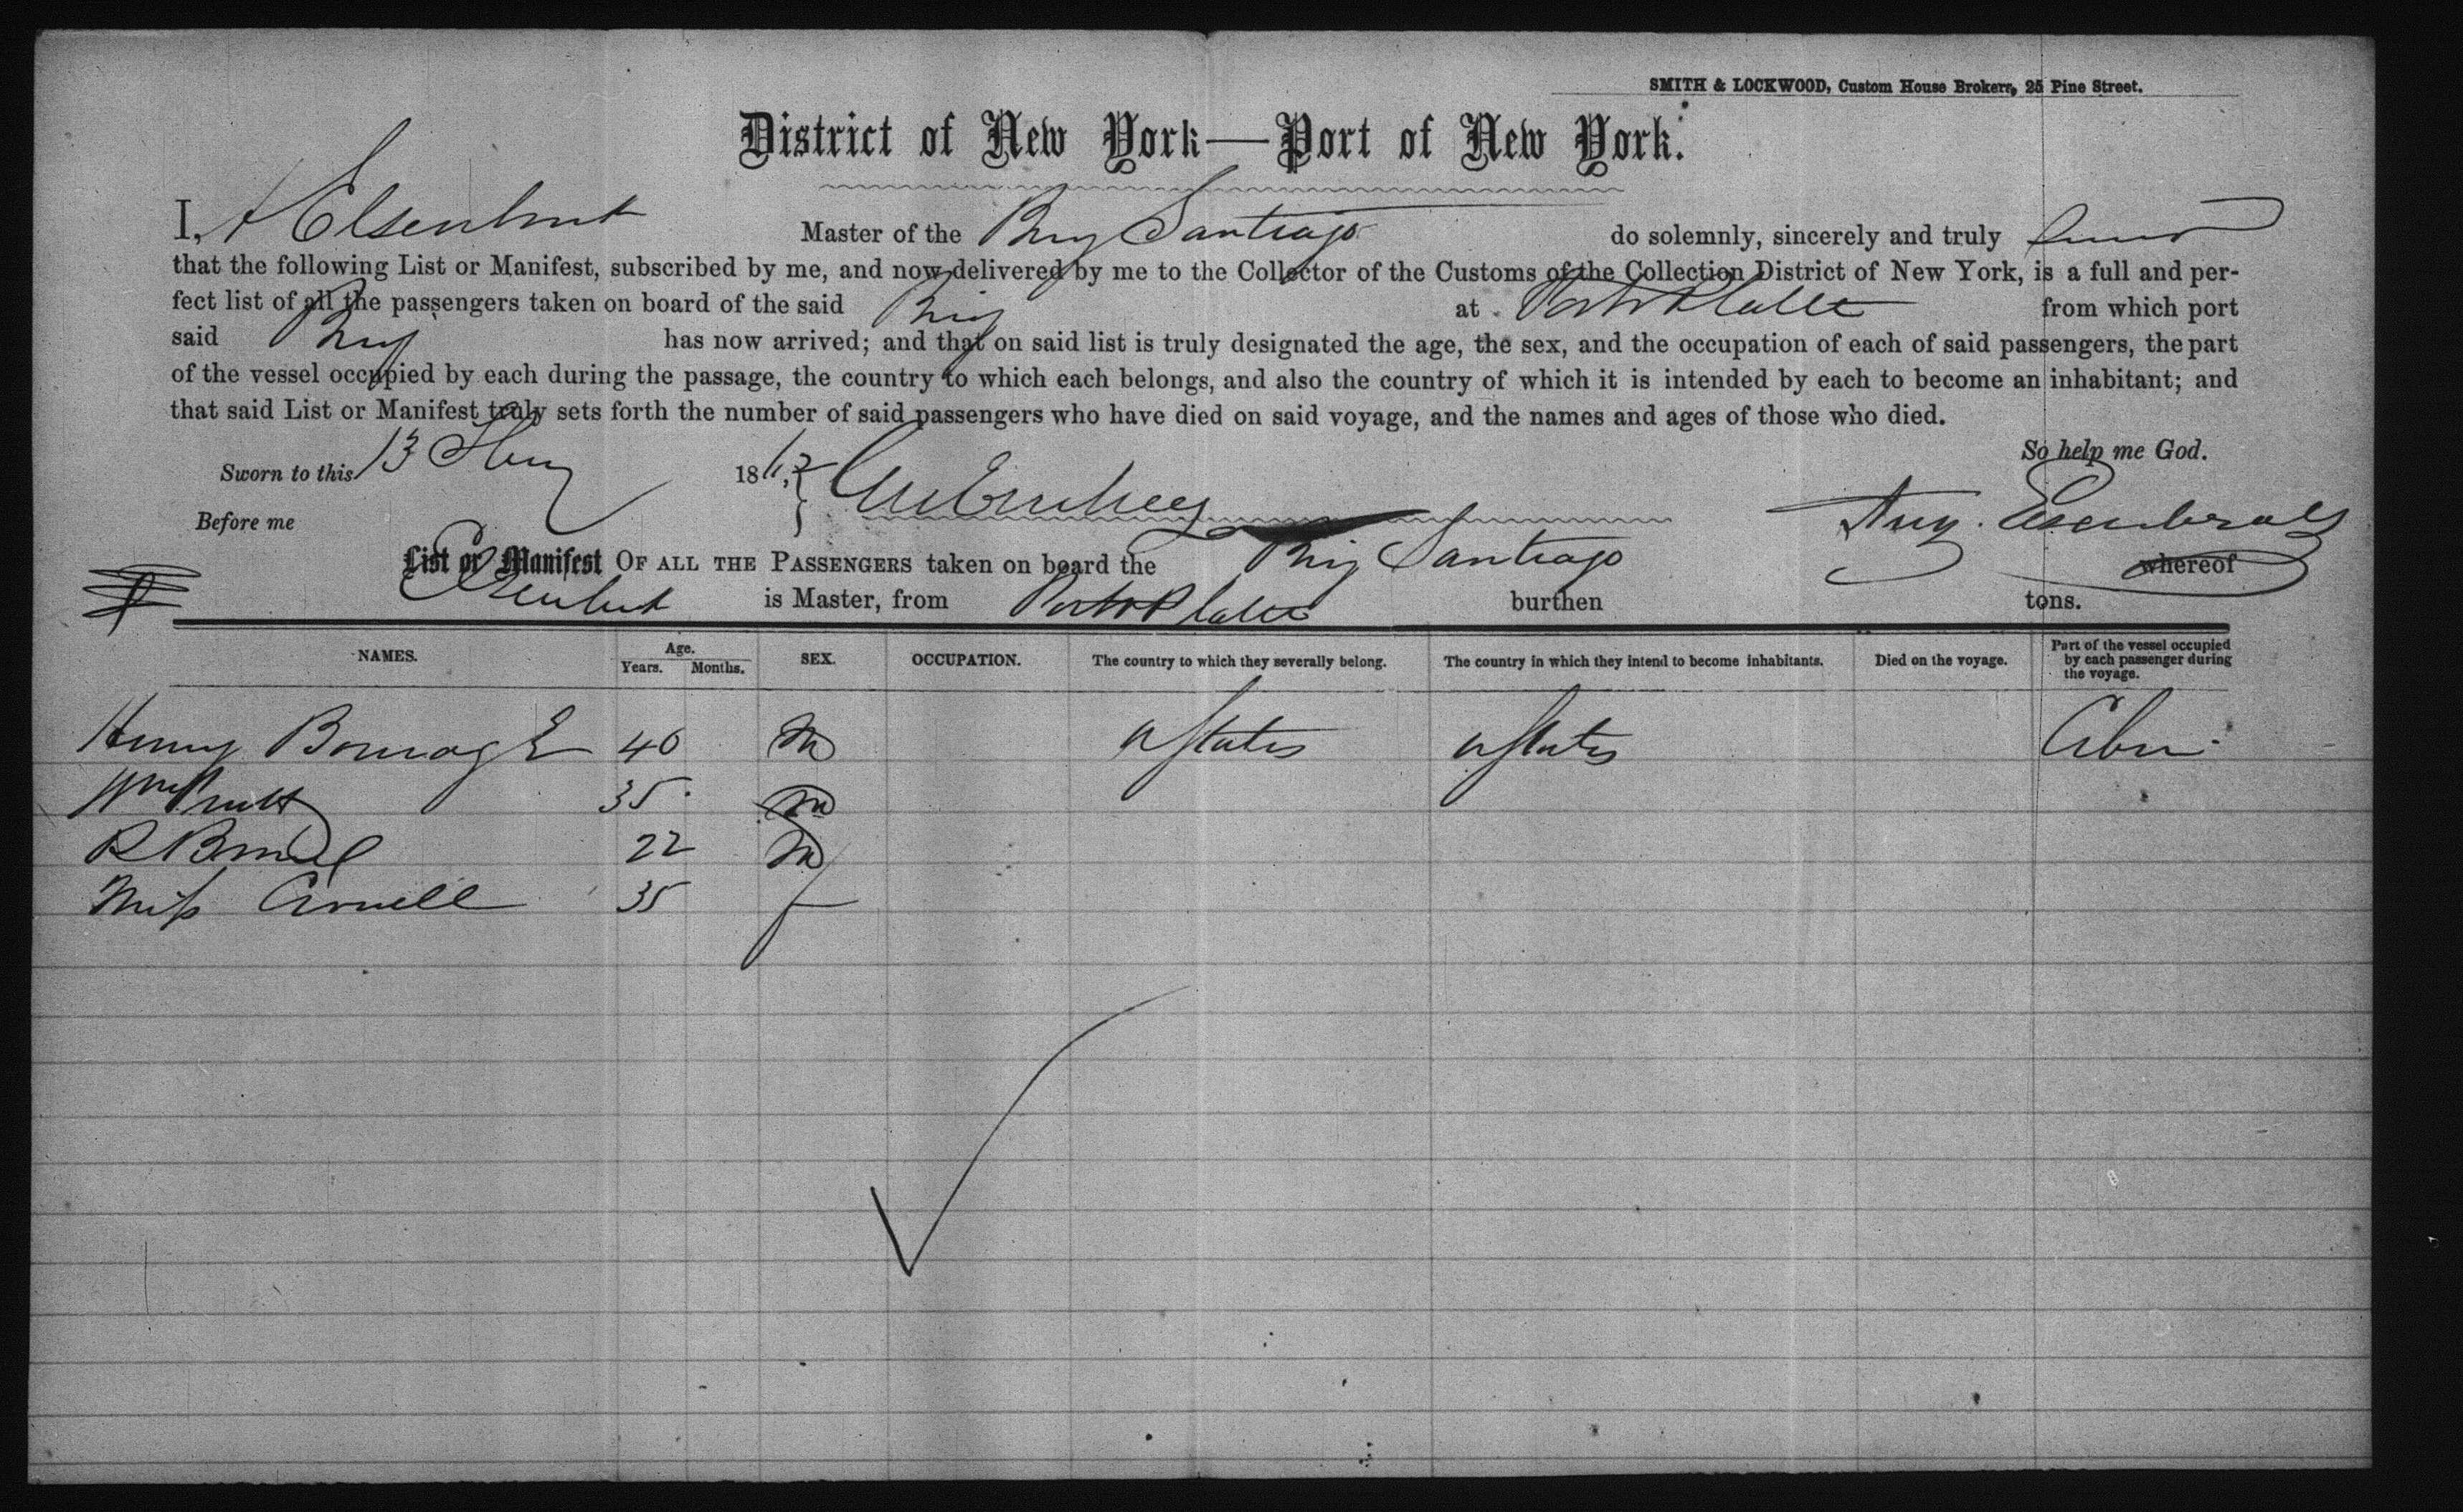 SMITH & LOCKWOOD, Custom House Brokers, 25 Pine Street.
District of New York—Port of New York.
I, A Elsenbrut Master of the Brig Santiago do solemnly, sincerely and truly
that the following List or Manifest, subscribed by me, and now delivered by me to the Collector of the Customs of the Collection District of New York, is a full and per-
fect list of all the passengers taken on board of the said Brig at Porto Platte from which port
said Brig has now arrived; and that on said list is truly designated the age, the sex, and the occupation of each of said passengers, the part
of the vessel occupied by each during the passage, the country to which each belongs, and also the country of which it is intended by each to become an inhabitant; and
that said List or Manifest truly sets forth the number of said passengers who have died on said voyage, and the names and ages of those who died.
So help me God.
Sworn to this 13 186
Before me
List or Manifest OF ALL THE PASSENGERS taken on board the Brig Santiago whereof
is Master, from Porto Platte burthen tons.
NAMES. Age. Years. Months. SEX. OCCUPATION. The country to which they severally belong. The country in which they intend to become inhabitants. Died on the voyage. Part of the vessel occupied by each passenger during the voyage.
Henry 40 m u States u States
Wm Pruitt 35 m
R 22 m
Miss 35 f